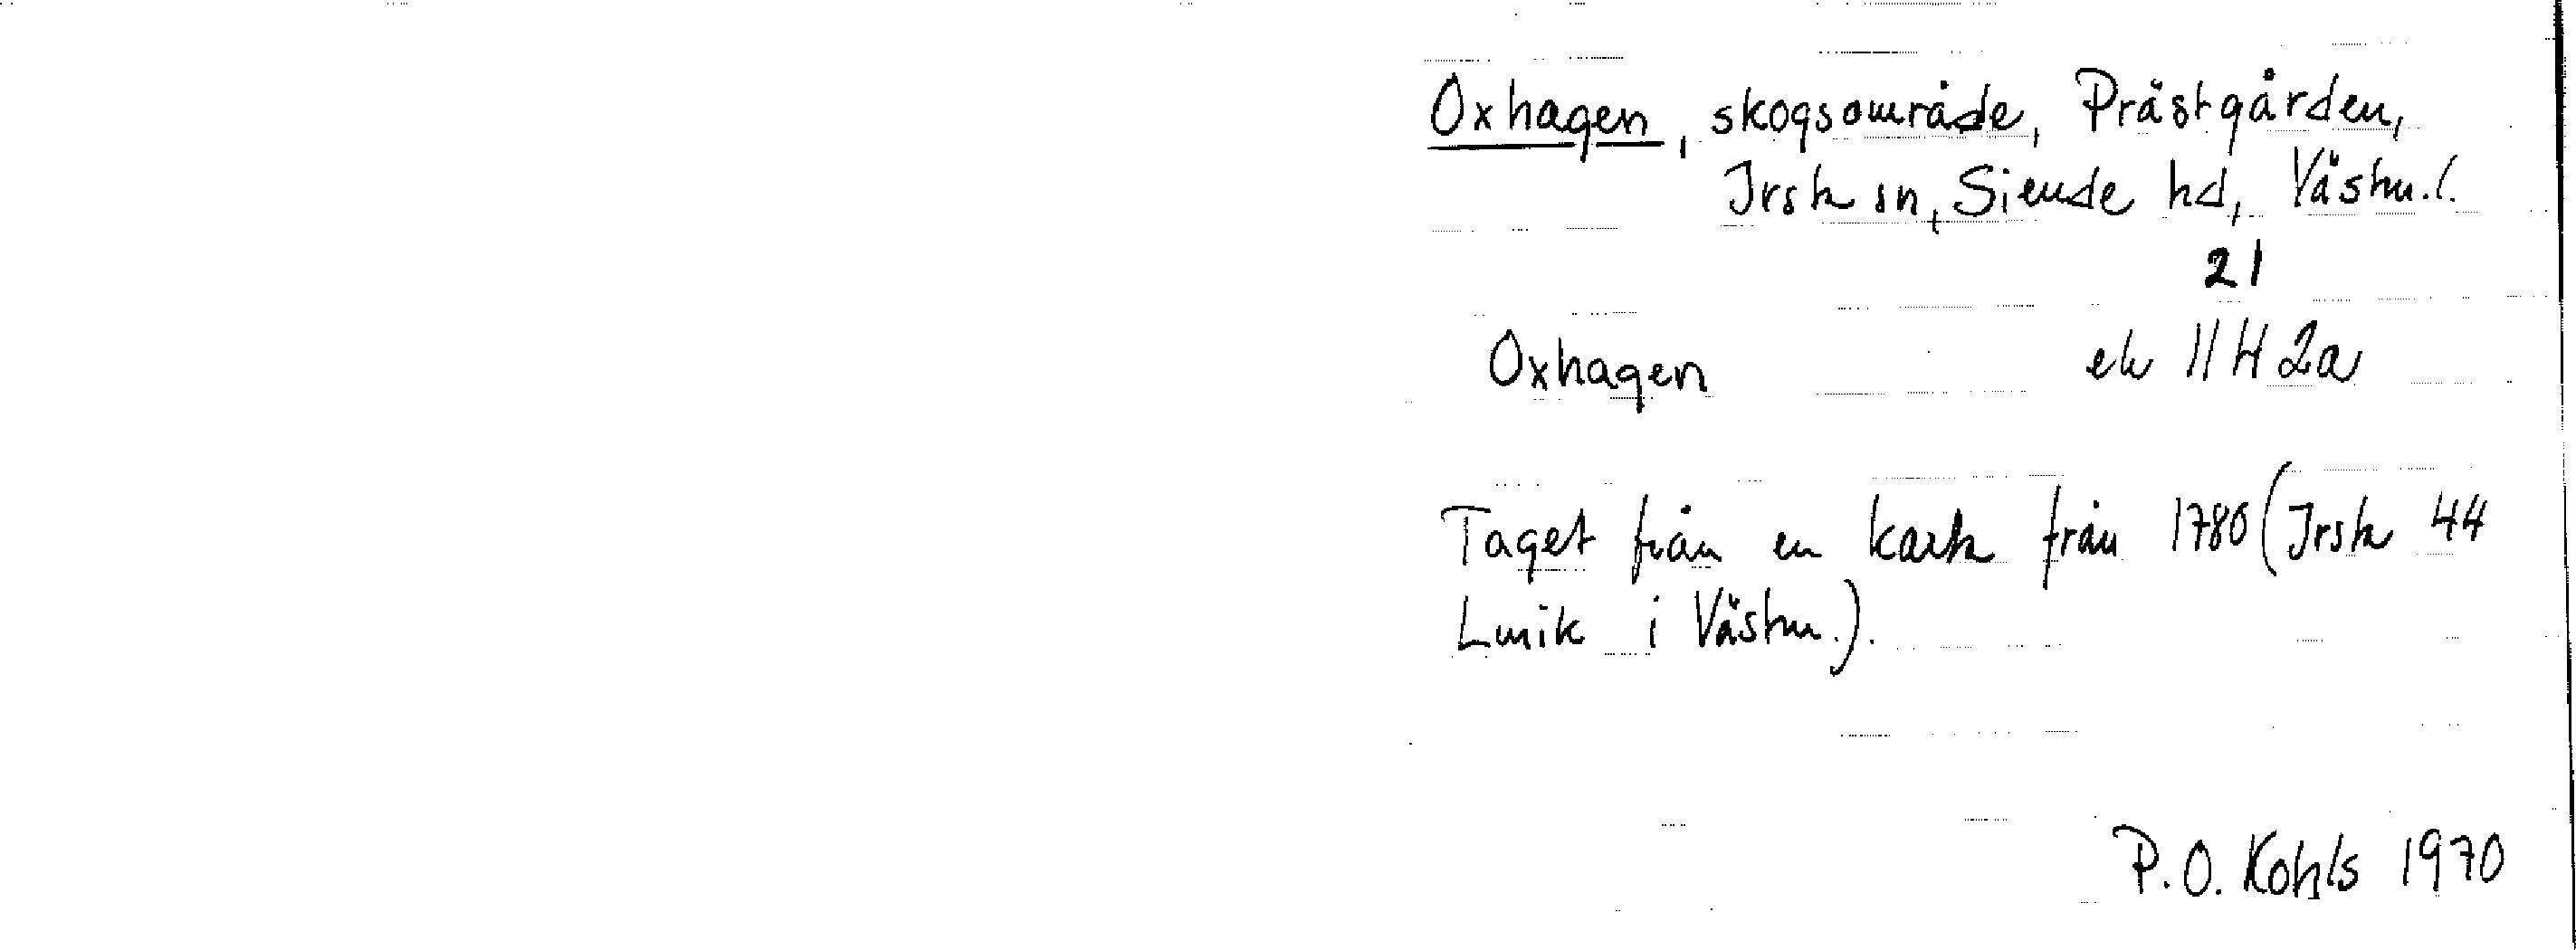 Oxhagen, skogsområde, Prästgården,
Irsta sn, Siende hd, Västm. l.
21
Oxhagen ek 11H 2a
Taget från en karta från 1780 (Irsta 44
Lmik i Västm.).
P.O. Kohls 1970